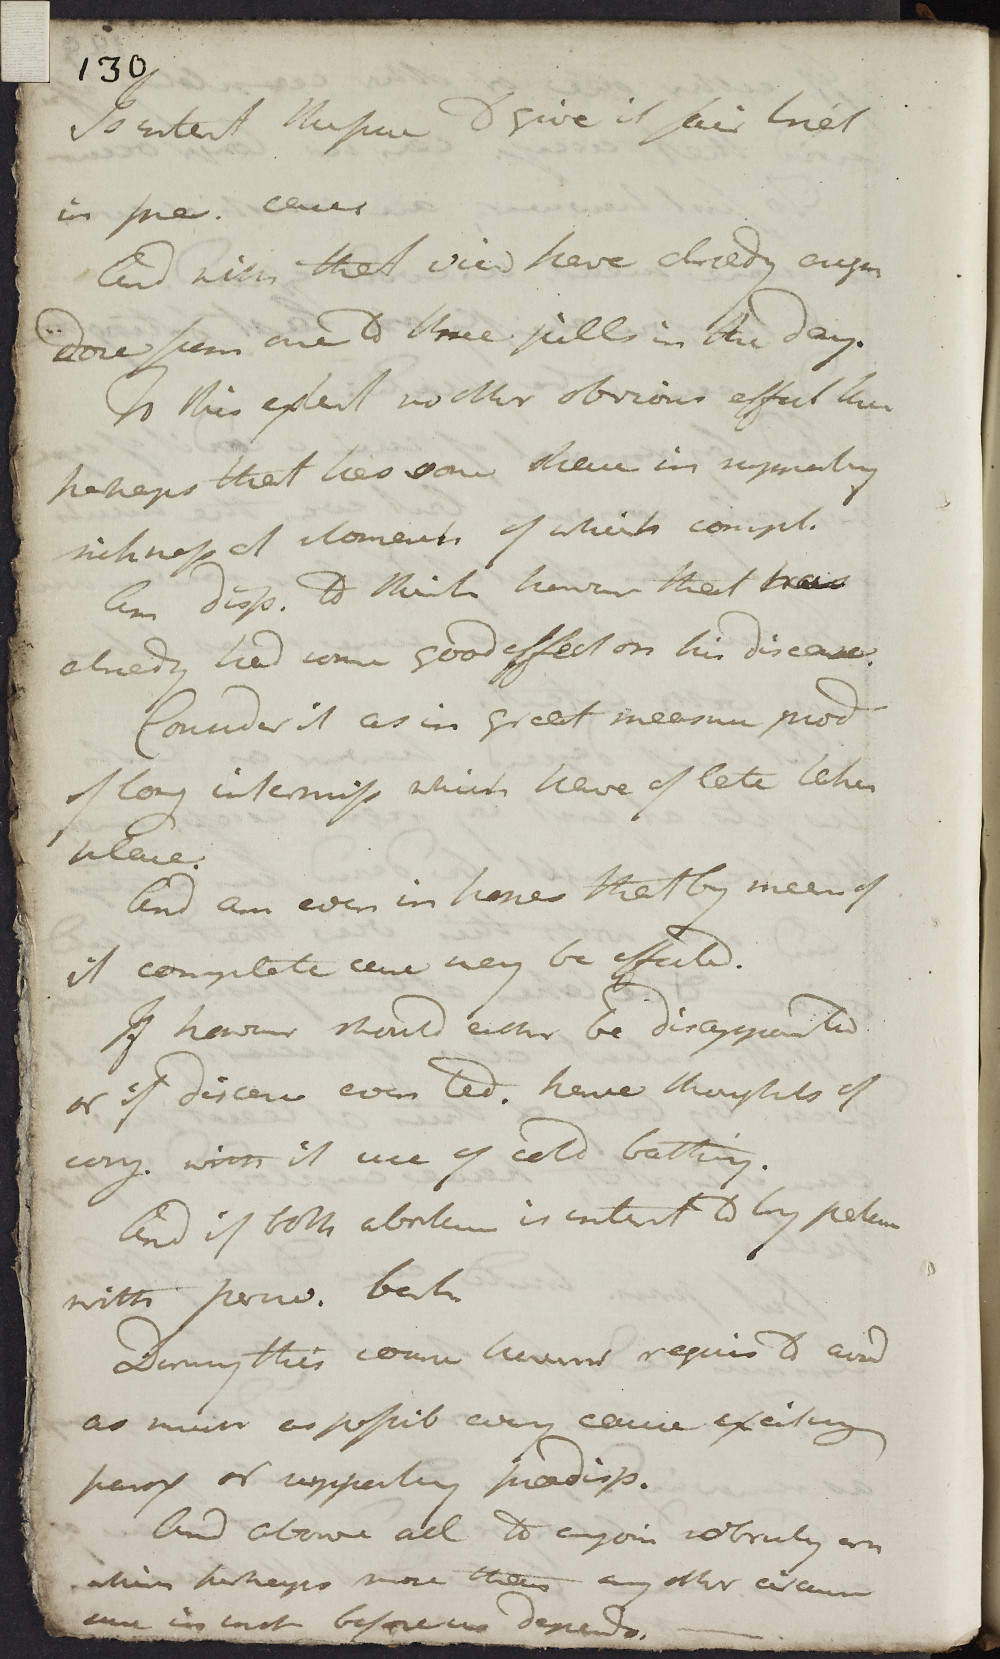 130
Is intent therefore to give it fair trial
in pres. cases
And with that view have already augm
dose from one to three pills in the day.
To this extent no other obvious effect than
perhaps that has some share in supporting
sickness at stomach of which compl.
Am disp. to think however that
already had some good effect on his disease.
Consider it as in great measure prod
of long intermiss which have of late taken
place.
And am even in hopes that by means of
it complete cure may be effected.
If however should either be disappointed
or if disease even red. have thoughts of
conj. with it use of cold bathing.
And if both abortive is intent to try
with peruv. bark
During this course however requis to avoid
as much as possib every cause exciting
parox or supporting predisp.
And above all to enjoin sobriety on
which perhaps more than any other circum
cure in inst before us depends.